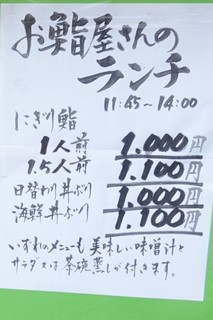 お鮨屋さんの
ランチ
11:45~14:00
にぎり鮨
1人前 1.000円
1.5人前 1.100円
日替わり丼ぶり 1.000円
海鮮丼ぶり 1.100円
いずれのメニューも美味しい味噌汁と
サラダ又は茶碗蒸しが付きます。